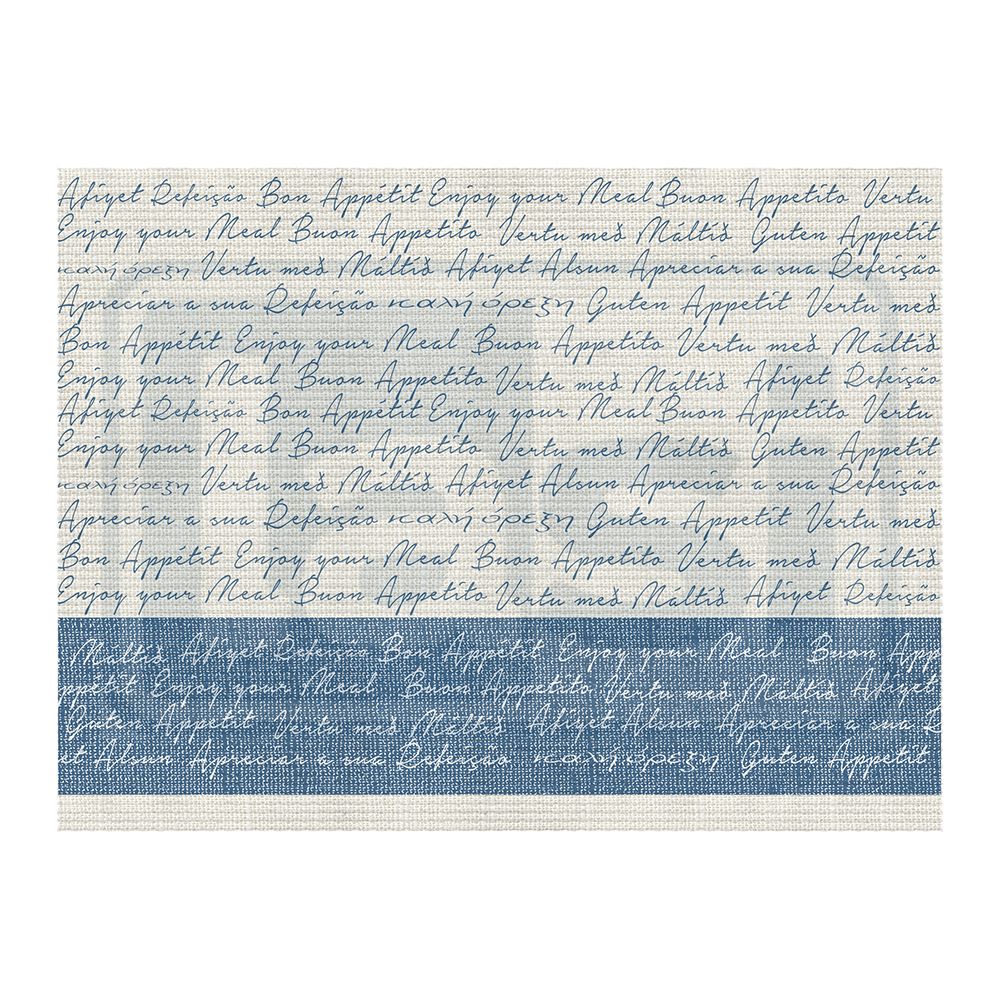 Afiyet Refeição Bon Appétit Enjoy your Meal Buon Appetito Vertu
Enjoy your Meal Buon Appetito Vertu með Máltíð Guten Appetit
καλή όρεξη Vertu með Máltíð Afiyet Alsun Apreciar a sua Refeição
Apreciar a sua Refeição καλή όρεξη Guten Appetit Vertu með
Bon Appétit Enjoy your Meal Buon Appetito Vertu með Máltíð
Enjoy your Meal Buon Appetito Vertu með Máltíð Afiyet Refeição
Afiyet Refeição Bon Appétit Enjoy your Meal Buon Appetito Vertu
Enjoy your Meal Buon Appetito Vertu með Máltíð Guten Appetit
καλή όρεξη Vertu með Máltíð Afiyet Alsun Apreciar a sua Refeição
Apreciar a sua Refeição καλή όρεξη Guten Appetit Vertu með
Bon Appétit Enjoy your Meal Buon Appetito Vertu með Máltíð
Enjoy your Meal Buon Appetito Vertu með Máltíð Afiyet Refeição
Máltíð Afiyet Refeição Bon Appétit Enjoy your Meal Buon App
ppétit Enjoy your Meal Buon Appetito Vertu með Máltíð Afiyet
Guten Appetit Vertu með Máltíð Afiyet Alsun Apreciar a sua R
et Alsun Apreciar a sua Refeição καλή όρεξη Guten Appetit